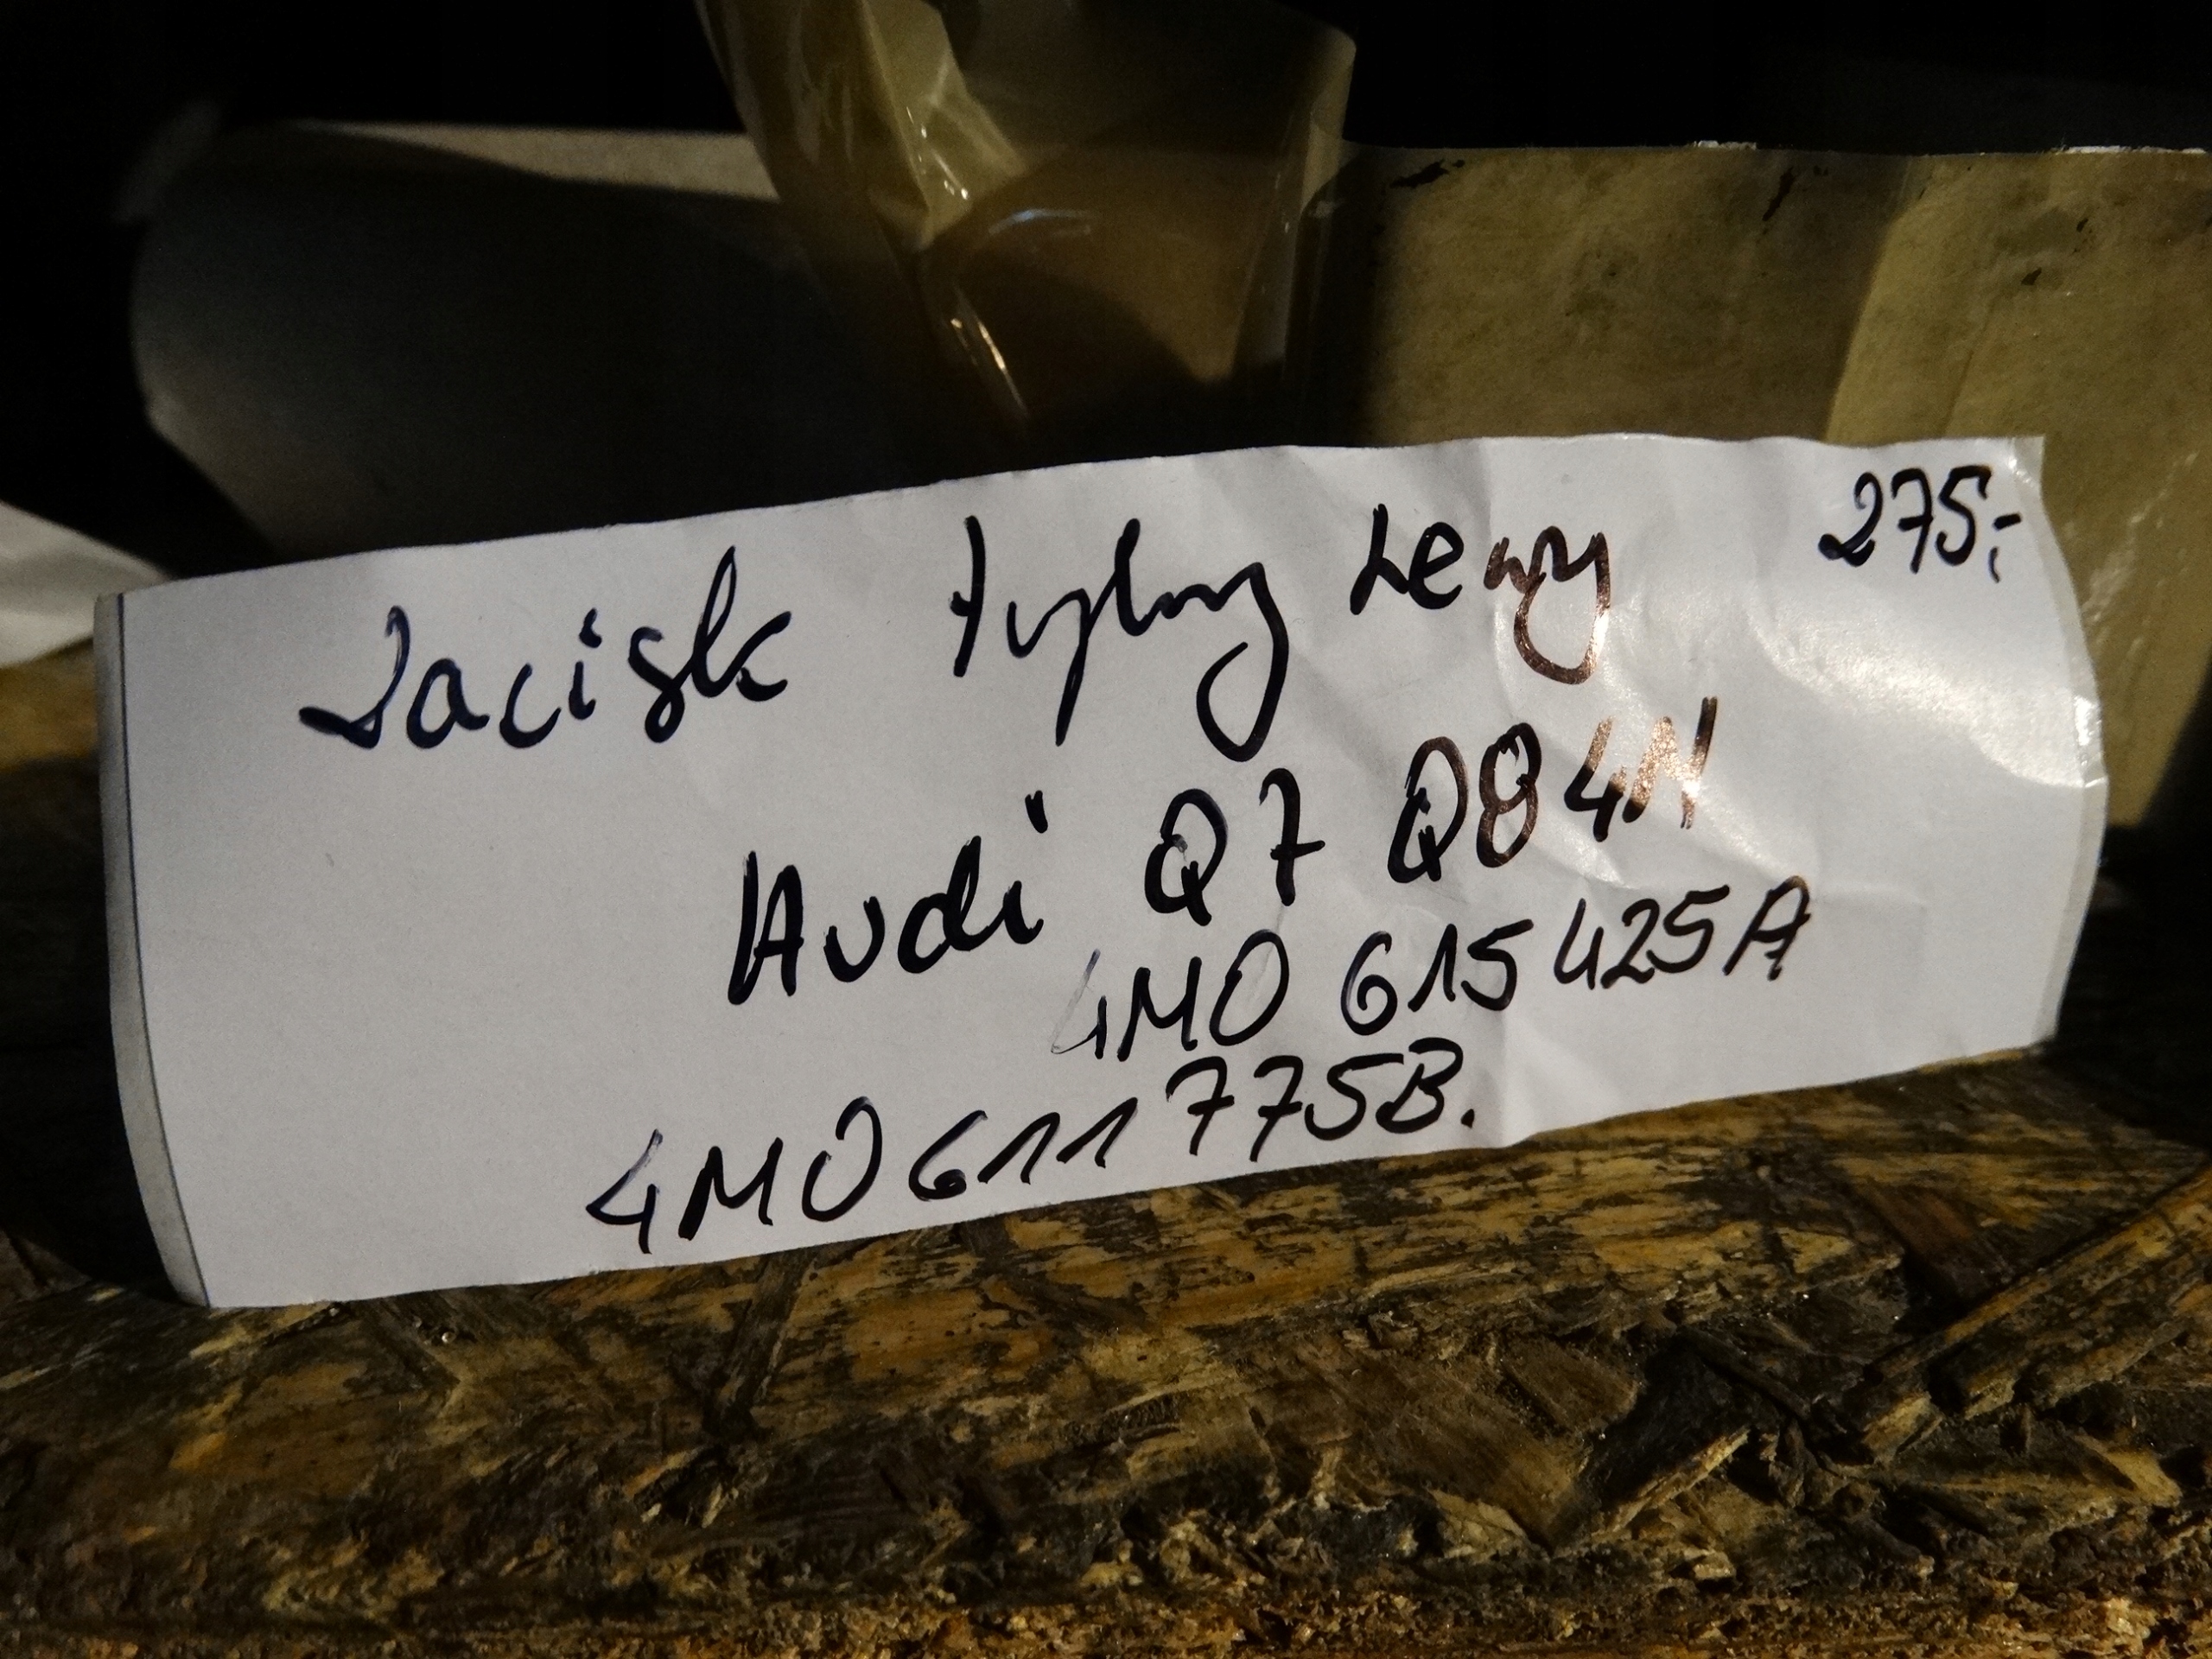 Zacisk tylny Lewy 275,-
Audi Q7 Q8 4M
4M0 615 425A
4M0611775B.